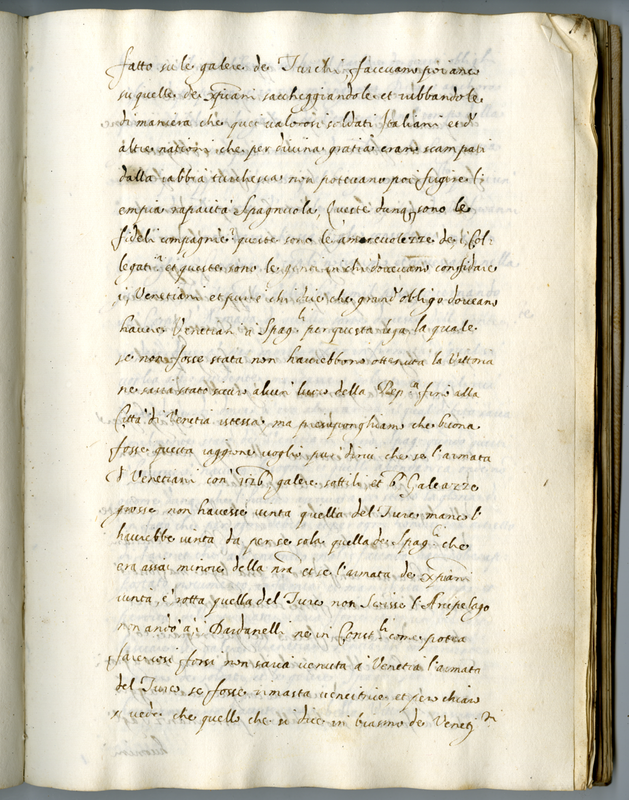 fatto su le galere de Turchi, facevano poi anco
su quelle de xpiani saccheggiandole et rubbandole
di maniera che quei valorosi soldati Italiani et d'
altre nationi che per divina gratia erano scampati
dalla rabbia turchesca non potevano poi fugire l'
empia rapacità Spagnuola, Queste dunq sono le
fideli compagnie, queste sono le amorevolezze de Col-
legati et queste sono le genti in chi dovevano confidare
i Venetiani et pure chi dice che grand' obligo doveano
haver Venetiani a Spagli per questa lega la quale
se non fosse stata non haverebbono ottenuta la Vittoria
ne saria stato sicuro alcun luoco della Repca fin alla
Città di Venetia istessa, ma presuponghiam che buona
fosse questa raggione voglio pur dirvi che se l'armata
d' Venetiani con galere sottili et 6 Galeazze
grosse non havesse vinta quella del Turco manco l'
haverebbe vinta da per se sola quella de Spagli che
era assai minore della nra et se l'armata de xpiani
vinta, e rotta quella del Turco non scorse l'Arcipelago
non andò a i Dardanelli ne in Constli come potea
farsi forsi non saria venuta à Venetia l'armata
del Turco se fosse rimasta vencitrice et però chiaro
si vede che quello che si dice in biasmo de Veneti